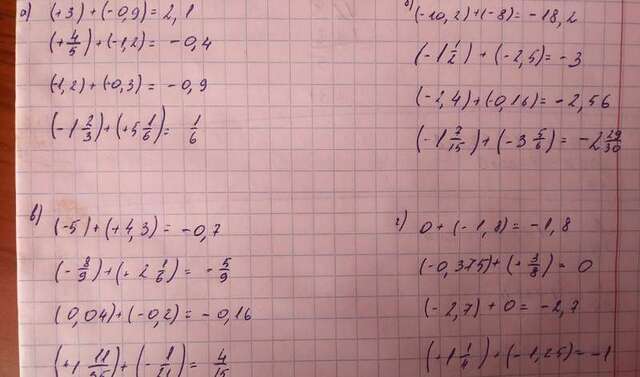 а)
(+3) + (-0,9) = 2,1
(+4/5) + (-1,2) = -0,4
(-1,2) + (-0,3) = -0,9
(-1 2/3) + (+5 1/6) = 1/6
б)
(-10,2) + (-8) = -18,2
(-1 1/2) + (-2,5) = -3
(-2,4) + (-0,16) = -2,56
(-1 2/15) + (-3 5/6) = -2 29/30
в)
(-5) + (+4,3) = -0,7
(-8/9) + (+2 1/6) = -5/9
(0,04) + (-0,2) = -0,16
(+1 11/35) + (-1/21) = 4/15
г)
0 + (-1,8) = -1,8
(-0,375) + (+3/8) = 0
(-2,7) + 0 = -2,7
(+1 1/4) + (-1,25) = -1